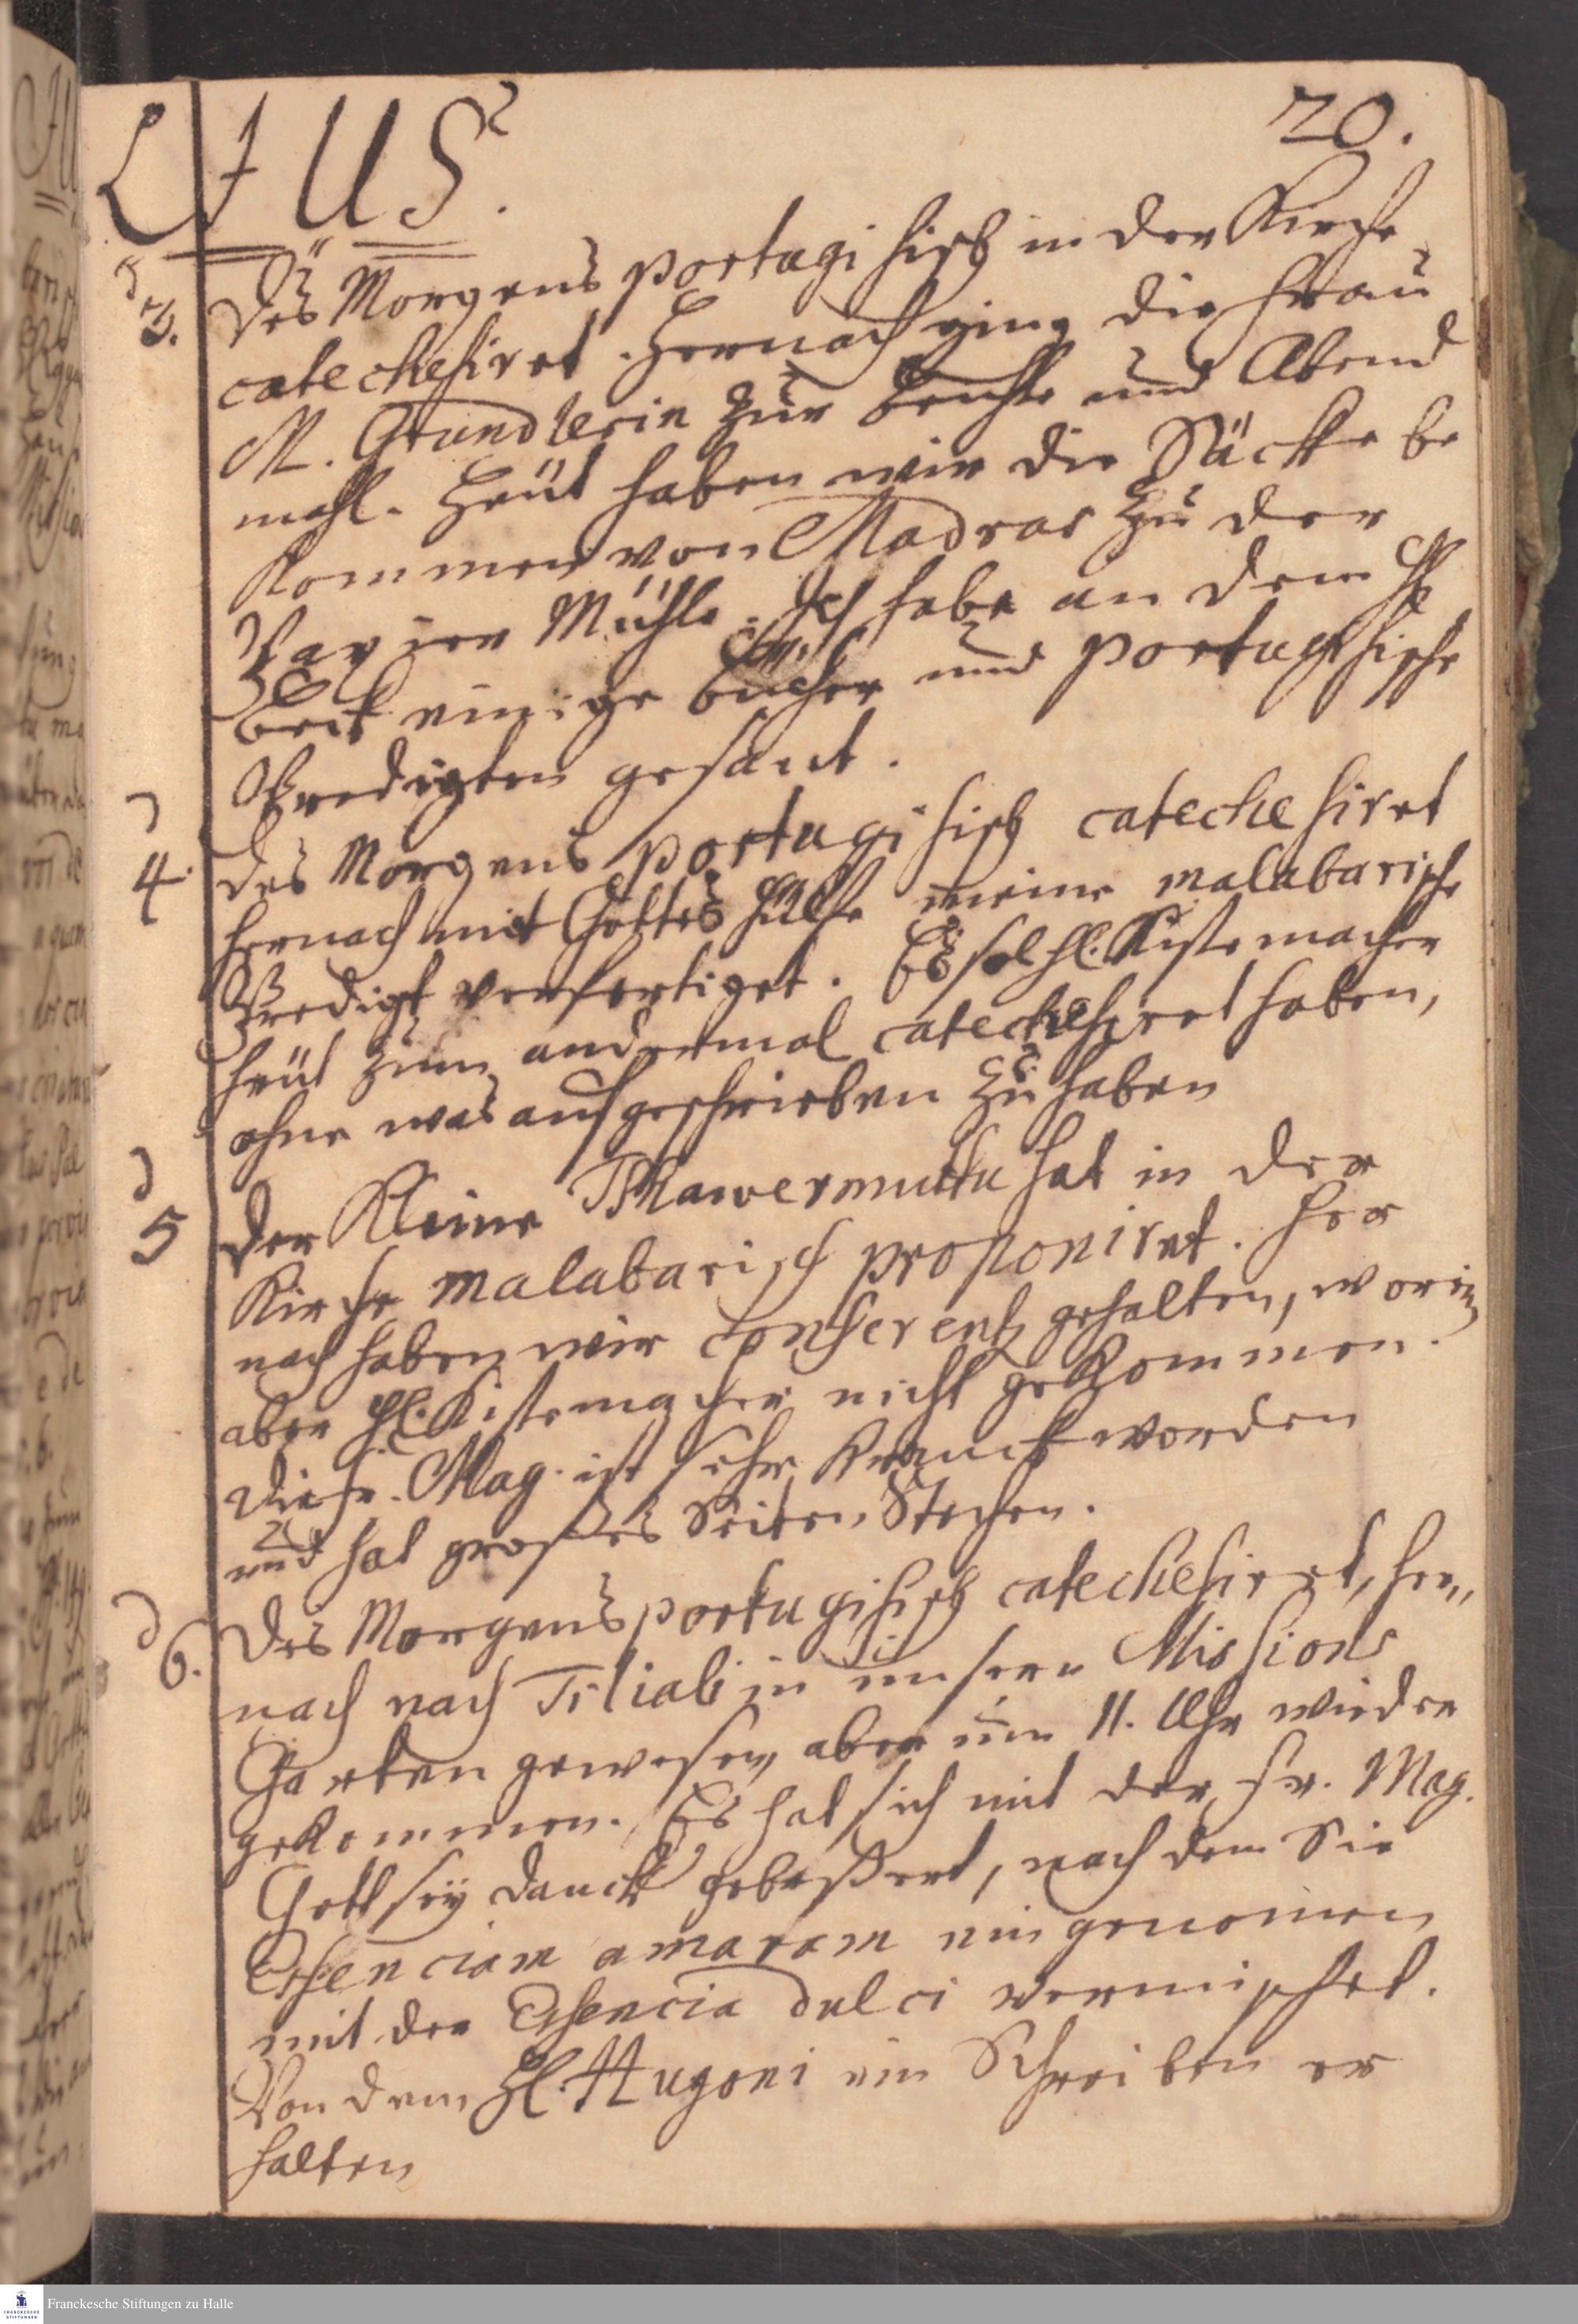 LIUS.
20.
d 3. Des Morgens portugisisch in der Kirche
catechesiret. Hernach ging die Frau
M. Grundlerin zur Beichte und Abend
mahl. Heüt haben wir die Säcke be
kommen von Madras zu der
Papier Mühle. Ich habe an dem H
einige bücher und portugisische
Predigten gesandt.
d 4. Des Morgens portugisisch catechesiret
hernach mit Gottes Hülfe meine malabarische
Predigt verfertiget. Es sol H. Kistemacher
heüt zum andermal catechesiret haben,
ohne was aufgeschrieben zu haben
d 5 Der Kleine hat in der
Kirche malabarisch proponiret. Her
nach haben wir Conferentz gehalten, worin
aber H. Kistemacher nicht gekommen.
Die Fr. Mag. ist sehr kranck worden
und hat großes Seiten Stechen.
d 6. Des Morgens portugisisch catechesiret, her„
nach nach Tiliali in unsern Missions
Garten gewesen, aber um 11. Uhr wieder
gekommen. Es hat sich mit der Fr. Mag.
Gott seÿ danck gebeßert, nach dem Sie
Essenciam amaram eingenomen
mit der Essencia dulci vermischet.
Von dem H. Hugoni ein Schreiben er
halten
Franckesche Stiftungen zu Halle